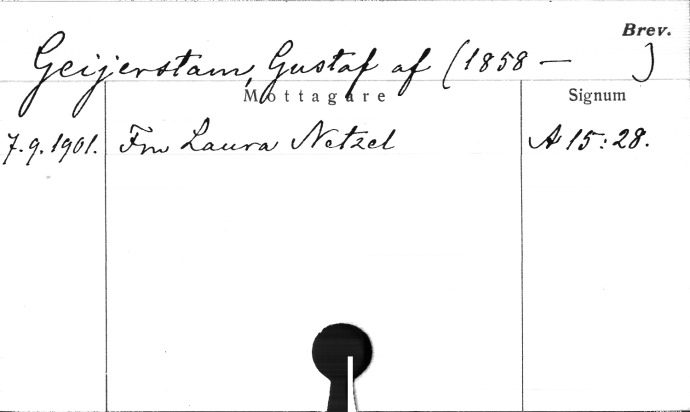 Brev.
Geijerstam, Gustaf af (1858 — )
Mottagare Signum
7.9.1901. Fru Laura Netzel A 15:28.